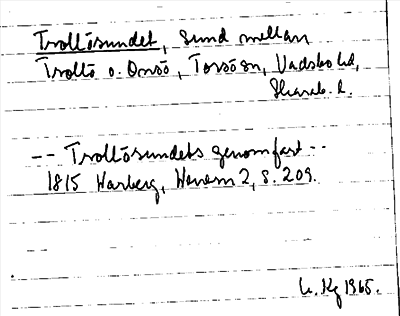 Trollösundet, sund mellan
Trollö o. Onsö, Torsö sn, Vadsbo hd,
Skarab. l.
-- Trollösundets genomfart --
1815 Warberg, Wenern 2, s. 209.
1965.